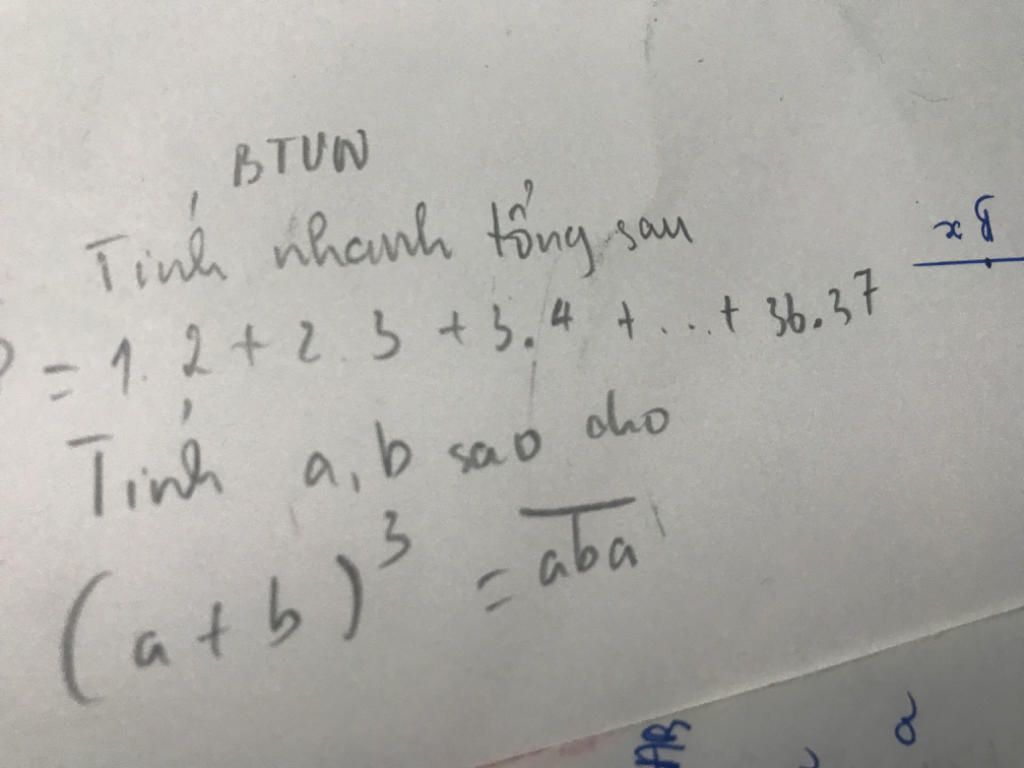 BTVN
Tính nhanh tổng sau
= 1.2 + 2.3 + 3.4 + ... + 36.37
x 8
Tính a, b sao cho
(a + b)³ = \overline{aba}
AB
a